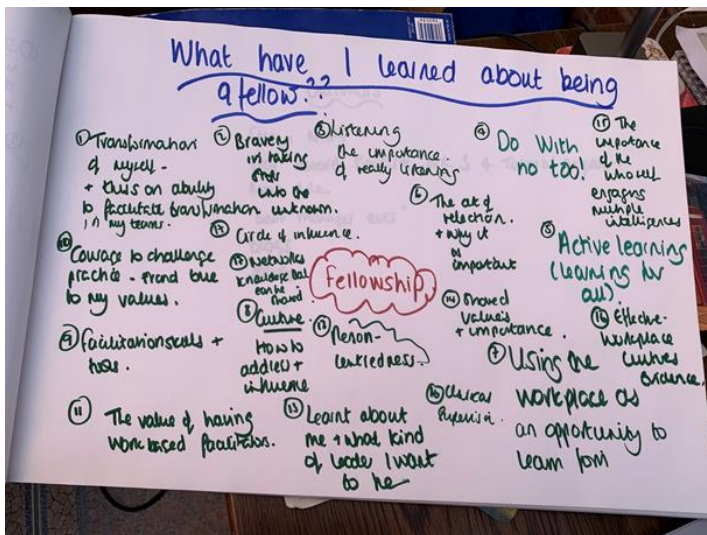 What have I learned about being
a fellow??
① Transformation
of myself -
+ this on ability
to facilitate transformation
in my teams.
② Bravery
in taking
step
into the
unknown.
③ Listening
the importance
of really listening
④ Do With
no too!
⑮ The
importance
of the
engaging
multiple
intelligences
⑥ The art of
reflection.
+ why it
is
important
⑤ Active learning
(learning for
all).
⑩ Courage to challenge
practice -
to my values.
Circle of influence.
Networks
knowledge
can be
shared
Fellowship
⑧ Culture
How to
address +
influence
⑫ Person-
centredness.
⑭ Shared
values
+ importance.
Effective
workplace
cultures
evidence.
⑨ Facilitation skills +
tools.
⑦ Using the
workplace as
an opportunity to
learn from
⑯ Clinical
⑪ The value of having
work based facilitators.
⑬ Learnt about
me + what kind
of leader I want
to be